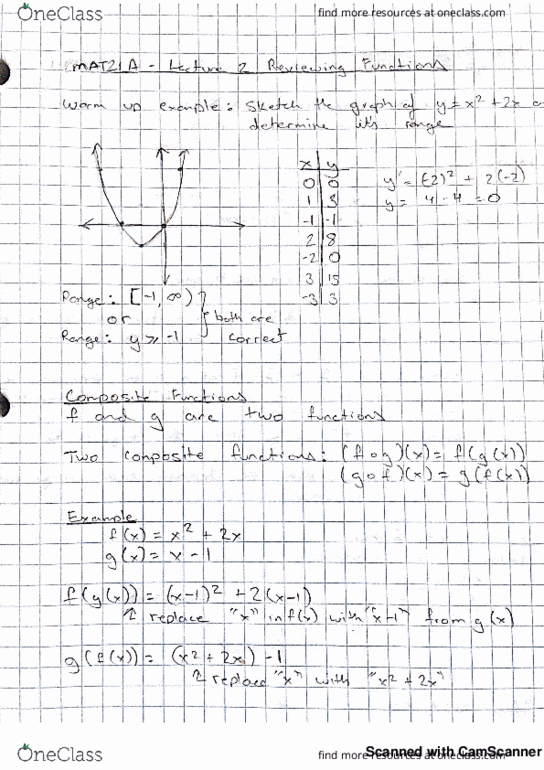 OneClass
find more resources at oneclass.com
MAT21A - Lecture 2 Reviewing Functions
Warm up example: Sketch the graph of y = x² + 2x
determine it's range
x | y
0 | 0
1 | 3
-1 | -1
2 | 8
-2 | 0
3 | 15
-3 | 3
y = (-2)² + 2(-2)
y = 4 - 4 = 0
Range: [-1, ∞)
or
Range: y ≥ -1
both are
correct
Composite Functions
f and g are two functions
Two composite functions: (f o g)(x) = f(g(x))
(g o f)(x) = g(f(x))
Example
f(x) = x² + 2x
g(x) = x - 1
f(g(x)) = (x-1)² + 2(x-1)
↑ replace "x" in f(x) with "x-1" from g(x)
g(f(x)) = (x² + 2x) - 1
↑ replace "x" with "x² + 2x"
OneClass
find more resources at oneclass.com
Scanned with CamScanner